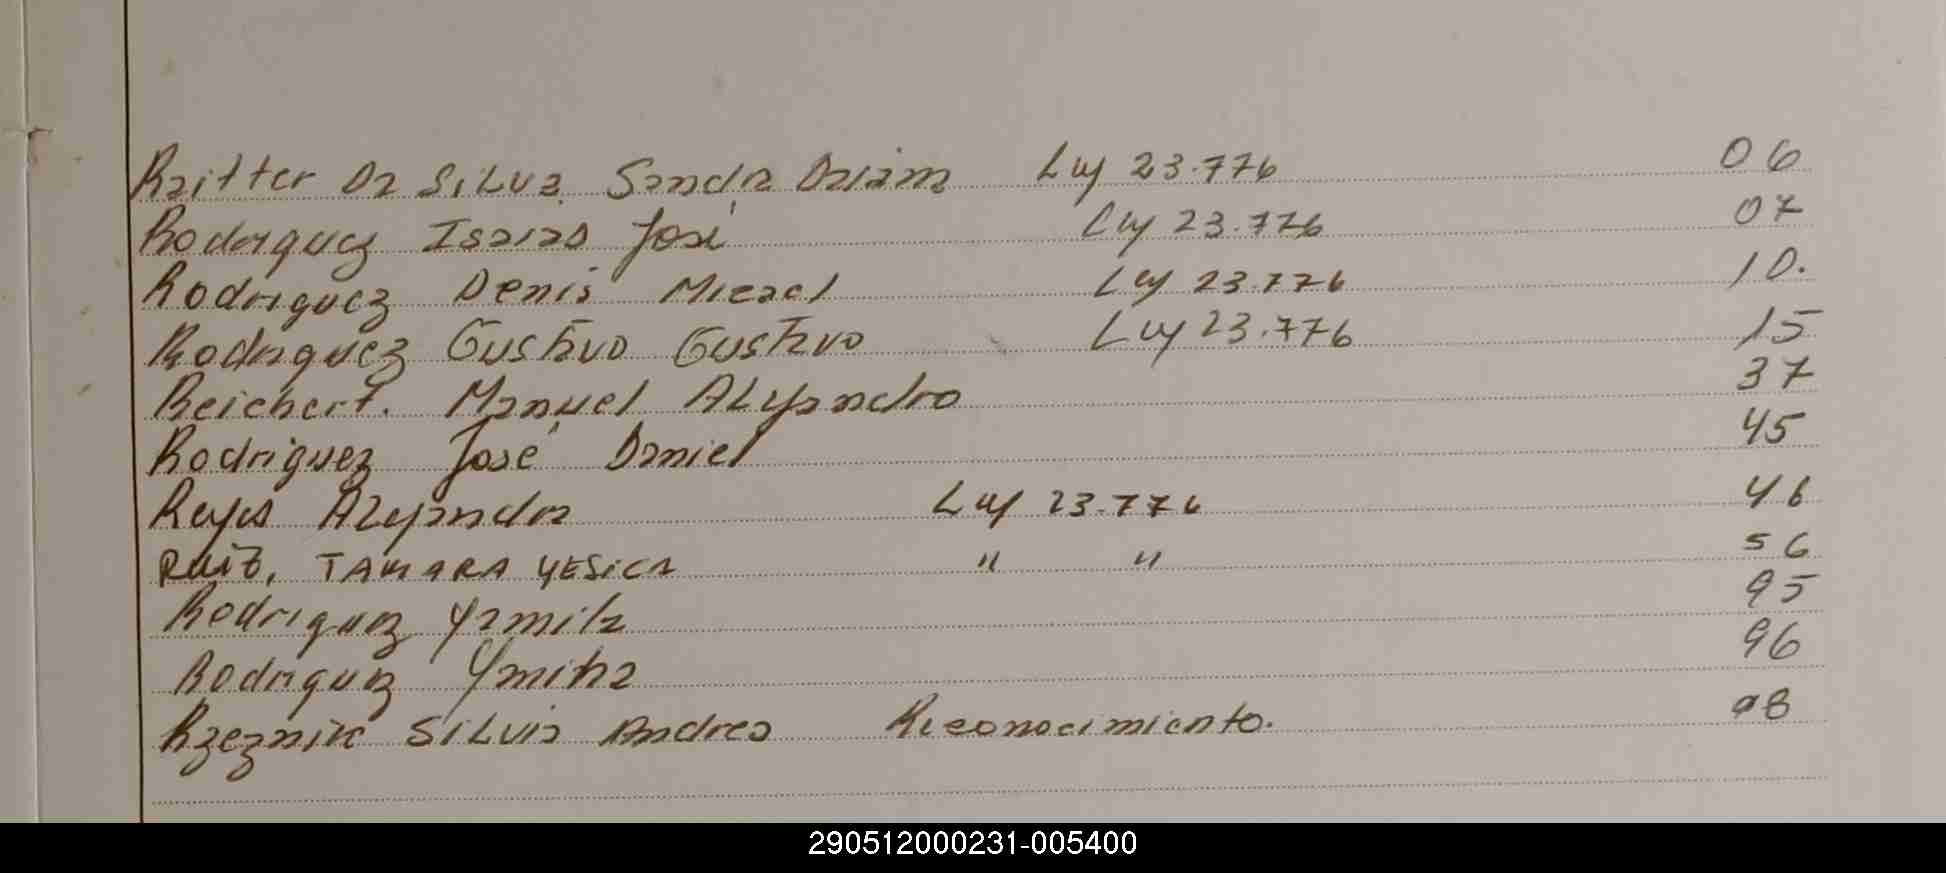 Raitter Da Silva Sandra Daiam Ley 23.776 06
Rodriguez Isaias José Ley 23.776 07
Rodriguez Denis Micael Ley 23.776 10.
Rodriguez Gustavo Gustavo Ley 23.776 15
Reichert. Manuel Alejandro 37
Rodriguez José Daniel 45
Reyes Alejandra Ley 23.776 46
RUIZ, TAMARA YESICA " " 56
Rodriguez Yamila 95
Rodriguez Ymila 96
Rzeznik Silvia Andrea Reconocimiento. 98
290512000231-005400